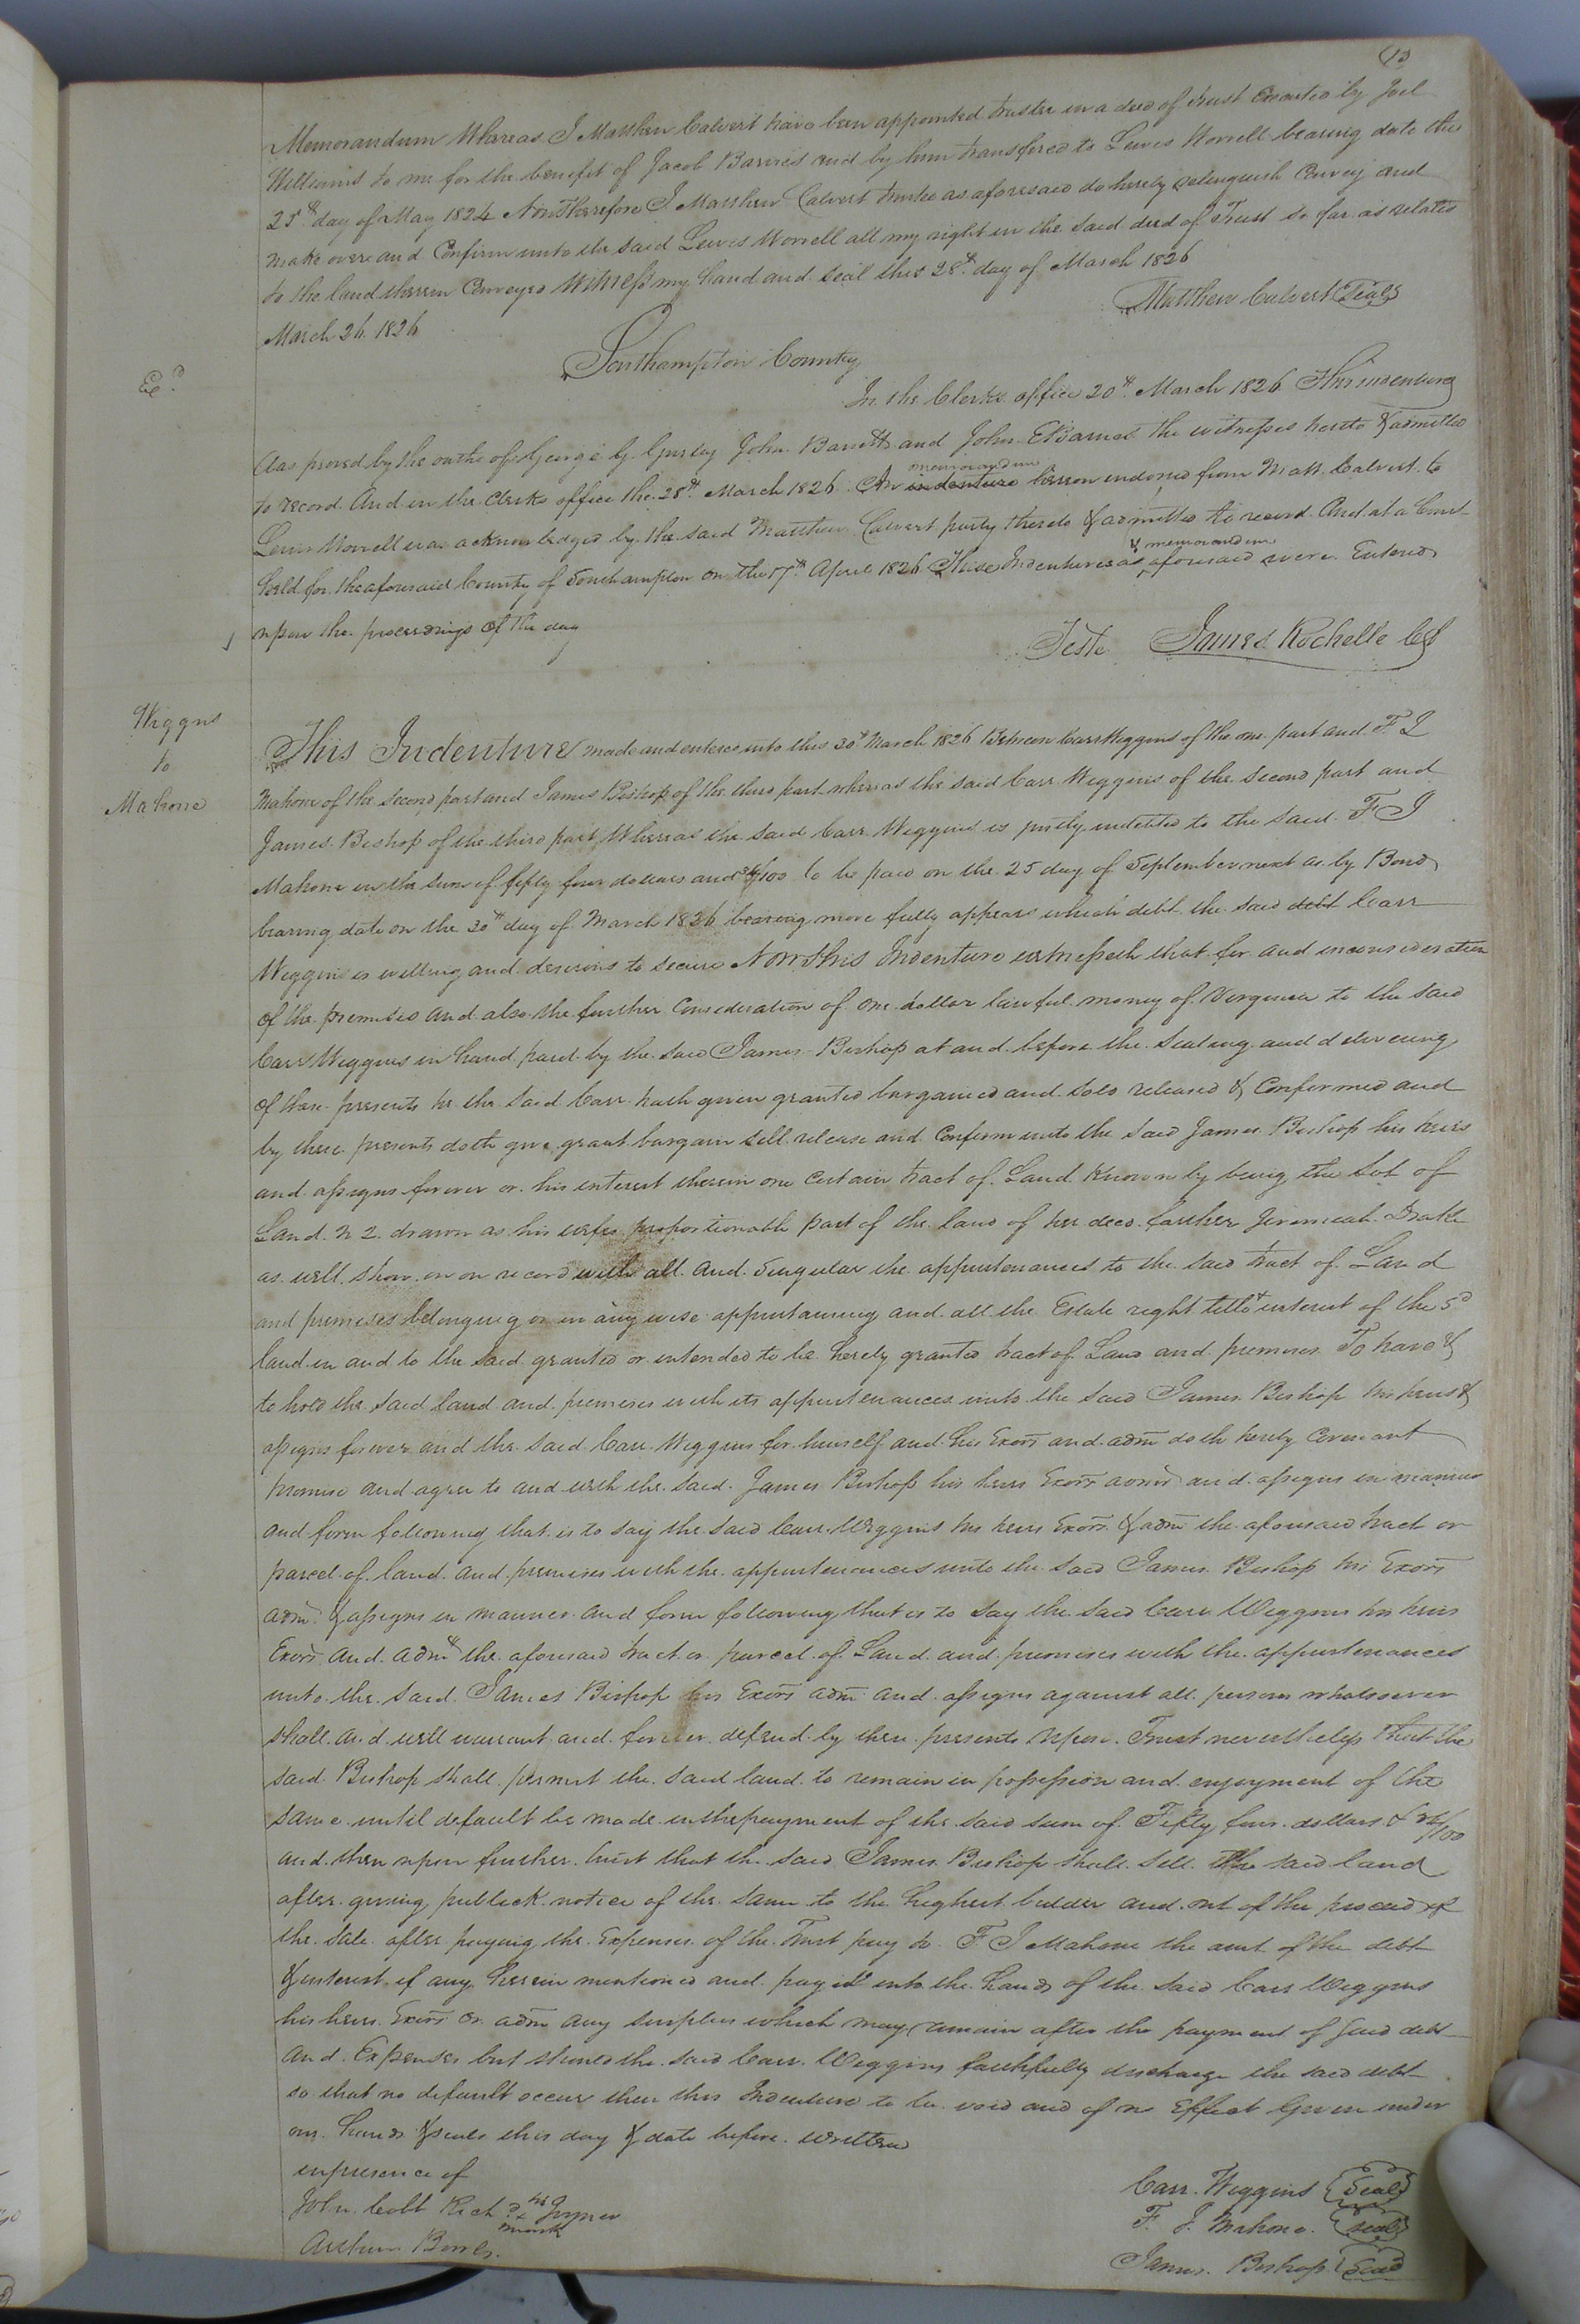 13
Memorandum Whereas I Matthew Calvert have been appointed trustee in a deed of trust Executed by Joel
Williams to me for the benefit of Jacob Barnes and by him transfired to Lewis Worrell bearing date the
25th day of May 1824 Now Therefore I Matthew Calvert trustee as aforesaid do hereby relinquish Convey and
make over and Confirm unto the said Lewis Worrell all my right in the said deed of Trust so far as relates
to the land therein Conveyed Witness my hand and seal this 28th day of March 1826
Matthew Calvert Seal
March 26 1826
Southampton County
Ed
In the Clerks office 20th March 1826 This indenture
was proved by the oaths of George G. Gurley John Barrett and John E Barnes the witnesses hereto & admitted
to record And in the Clerks office the 28th March 1826 An indenture memorandum hereon endorsed from Matt. Calvert to
Lewis Worrell was acknowledged by the said Matthew Calvert party thereto & admitted to record And at a Court
held for the aforesaid County of Southampton on the 17th April 1826 These Indentures & memorandum as aforesaid were Entered
upon the proceedings of the day
Teste James Rochelle CC
Wiggins
to
Mahone
This Indenture made and entered into this 30th March 1826 Between Carr Wiggins of the one part and F J
Mahone of the second part and James Bishop of the third part whereas the said Carr Wiggins of the second part and
James Bishop of the third part Whereas the said Carr Wiggins is justly indebted to the said F J
Mahone in the sum of fifty four dollars and 36/100 to be paid on the 25 day of September next as by Bond
bearing date on the 30th day of March 1826 bearing more fully appears which debt the said debt Carr
Wiggins is willing and desirous to secure Now This Indenture witnesseth that for and in consideration
of the premises and also the further Consideration of one dollar lawful money of Virginia to the said
Carr Wiggins in hand paid by the said James Bishop at and before the sealing and delivering
of these presents he the said Carr hath given granted bargained and sold released & Confirmed and
by these presents doth give grant bargain sell release and Confirm unto the said James Bishop his heirs
and assigns forever or his interest therein one certain tract of Land Known by being the Lot of
Land N 2 drawn as his wifes proportionable part of the land of her decd. father Jeremiah Drake
as will show on on record with all and Singular the appurtenances to the said tract of Land
and premises belonging or in any wise appertaining and all the Estate right title & interest of the sd
land in and to the said granted or intended to be hereby granted tract of Land and premises To have &
to hold the said land and premises with its appurtenances unto the said James Bishop his heirs &
assigns forever and the said Carr Wiggins for himself and his Exors and admr doth hereby Covenant
promise and agree to and with the said James Bishop his heirs Exors admrs and assigns in manner
and form following that is to say the said Carr Wiggins his heirs Exors & admr the aforesaid tract or
parcel of land and premises with the appurtenances unto the said James Bishop his Exors
admr & assigns in manner and form following that is to say the said Carr Wiggins his heirs
Exors and admr the aforesaid tract or parcel of Land and premises with the appurtenances
unto the said James Bishop his Exors admr and assigns against all persons whatsoever
shall and will warrant and forever defend by these presents upon Trust nevertheless that the
said Bishop shall permit the said land to remain in possession and enjoyment of the
same until default be made in the payment of the said sum of Fifty four dollars & 36/100
and then upon further trust that the said James Bishop shall sell the said land
after giving publick notice of the same to the highest bidder and out of the proceed of
the sale after paying the Expenses of the Trust pay to F. J Mahone the amt of the debt
& interest if any herein mentioned and pay it into the hands of the said Carr Wiggins
his heirs Exors or admr any surplus which may remain after the payment of said debt
and Expenses but should the said Carr Wiggins faithfully discharge the said debt
so that no default occur then this Indenture to be void and of no Effect Given under
our hands & seals this day & date before written
in presence of
Carr Wiggins Seal
John Cobb Richd his x mark Joyner
F. J. Mahone Seal
Arthur Bowls
James Bishop Seal